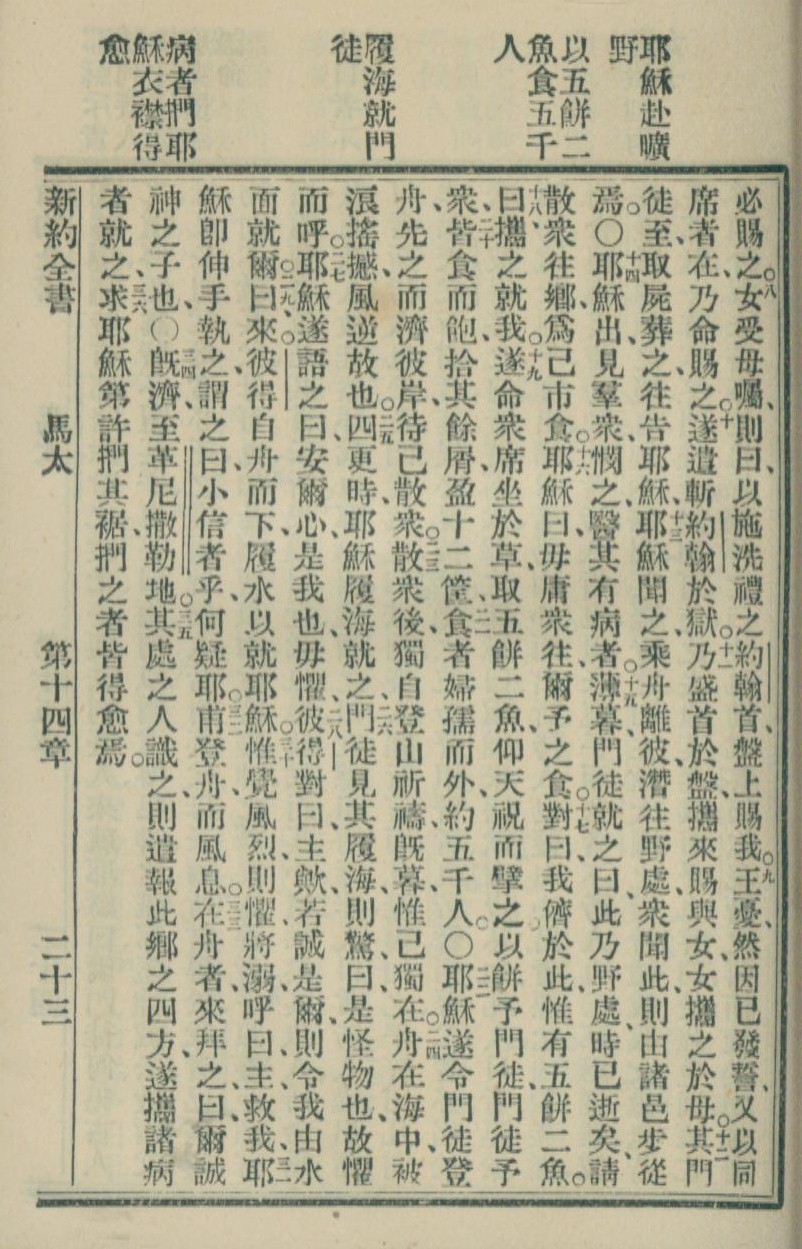 耶穌赴曠
野
以五餅二
魚食五千
人
履海就門
徒
病者捫耶
穌衣襟得
愈
必賜之○八女受母囑、則曰、以施洗禮之約翰首、盤上賜我○九王憂、然因已發誓、又以同
席者在、乃命賜之○十遂遣斬約翰於獄○十一乃盛首於盤、攜來賜與女、女攜之於母○十二其門
徒至、取屍葬之、往告耶穌、十三耶穌聞之、乘舟離彼、潛往野處、衆聞此、則由諸邑步從
焉○○十四耶穌出、見羣衆、憫之、醫其有病者○十五薄暮、門徒就之曰、此乃野處、時已逝矣、請
散衆往鄉、爲己市食○十六耶穌曰、毋庸衆往、爾予之食○十七對曰、我儕於此、惟有五餅二魚○
十八、曰、攜之就我○十九遂命衆席坐於草、取五餅二魚、仰天祝而擘之、以餅予門徒、門徒予
衆、二十皆食而飽、拾其餘屑、盈十二筐、二一食者婦孺而外、約五千人○○二二耶穌遂令門徒登
舟、先之而濟彼岸、待己散衆○二三散衆後、獨自登山祈禱、旣暮、惟己獨在○二四舟在海中、被
浪搖撼、風逆故也○二五四更時、耶穌履海就之、二六門徒見其履海、則驚曰、是怪物也、故懼
而呼○二七耶穌遂語之曰、安爾心、是我也、毋懼、二八彼得對曰、主歟、若誠是爾、則令我由水
面就爾○二九、曰、來○彼得自舟而下、履水以就耶穌○三十惟覺風烈、則懼、將溺、呼曰、主救我、三一耶
穌卽伸手執之、謂之曰、小信者乎、何疑耶○三二甫登舟而風息○三三在舟者來拜之曰、爾誠
神之子也○三四旣濟、至革尼撒勒地○三五其處之人識之、則遣報此鄉之四方、遂攜諸病
者就之、三六求耶穌第許捫其裾、捫之者皆得愈焉○
新約全書 馬太 第十四章 二十三